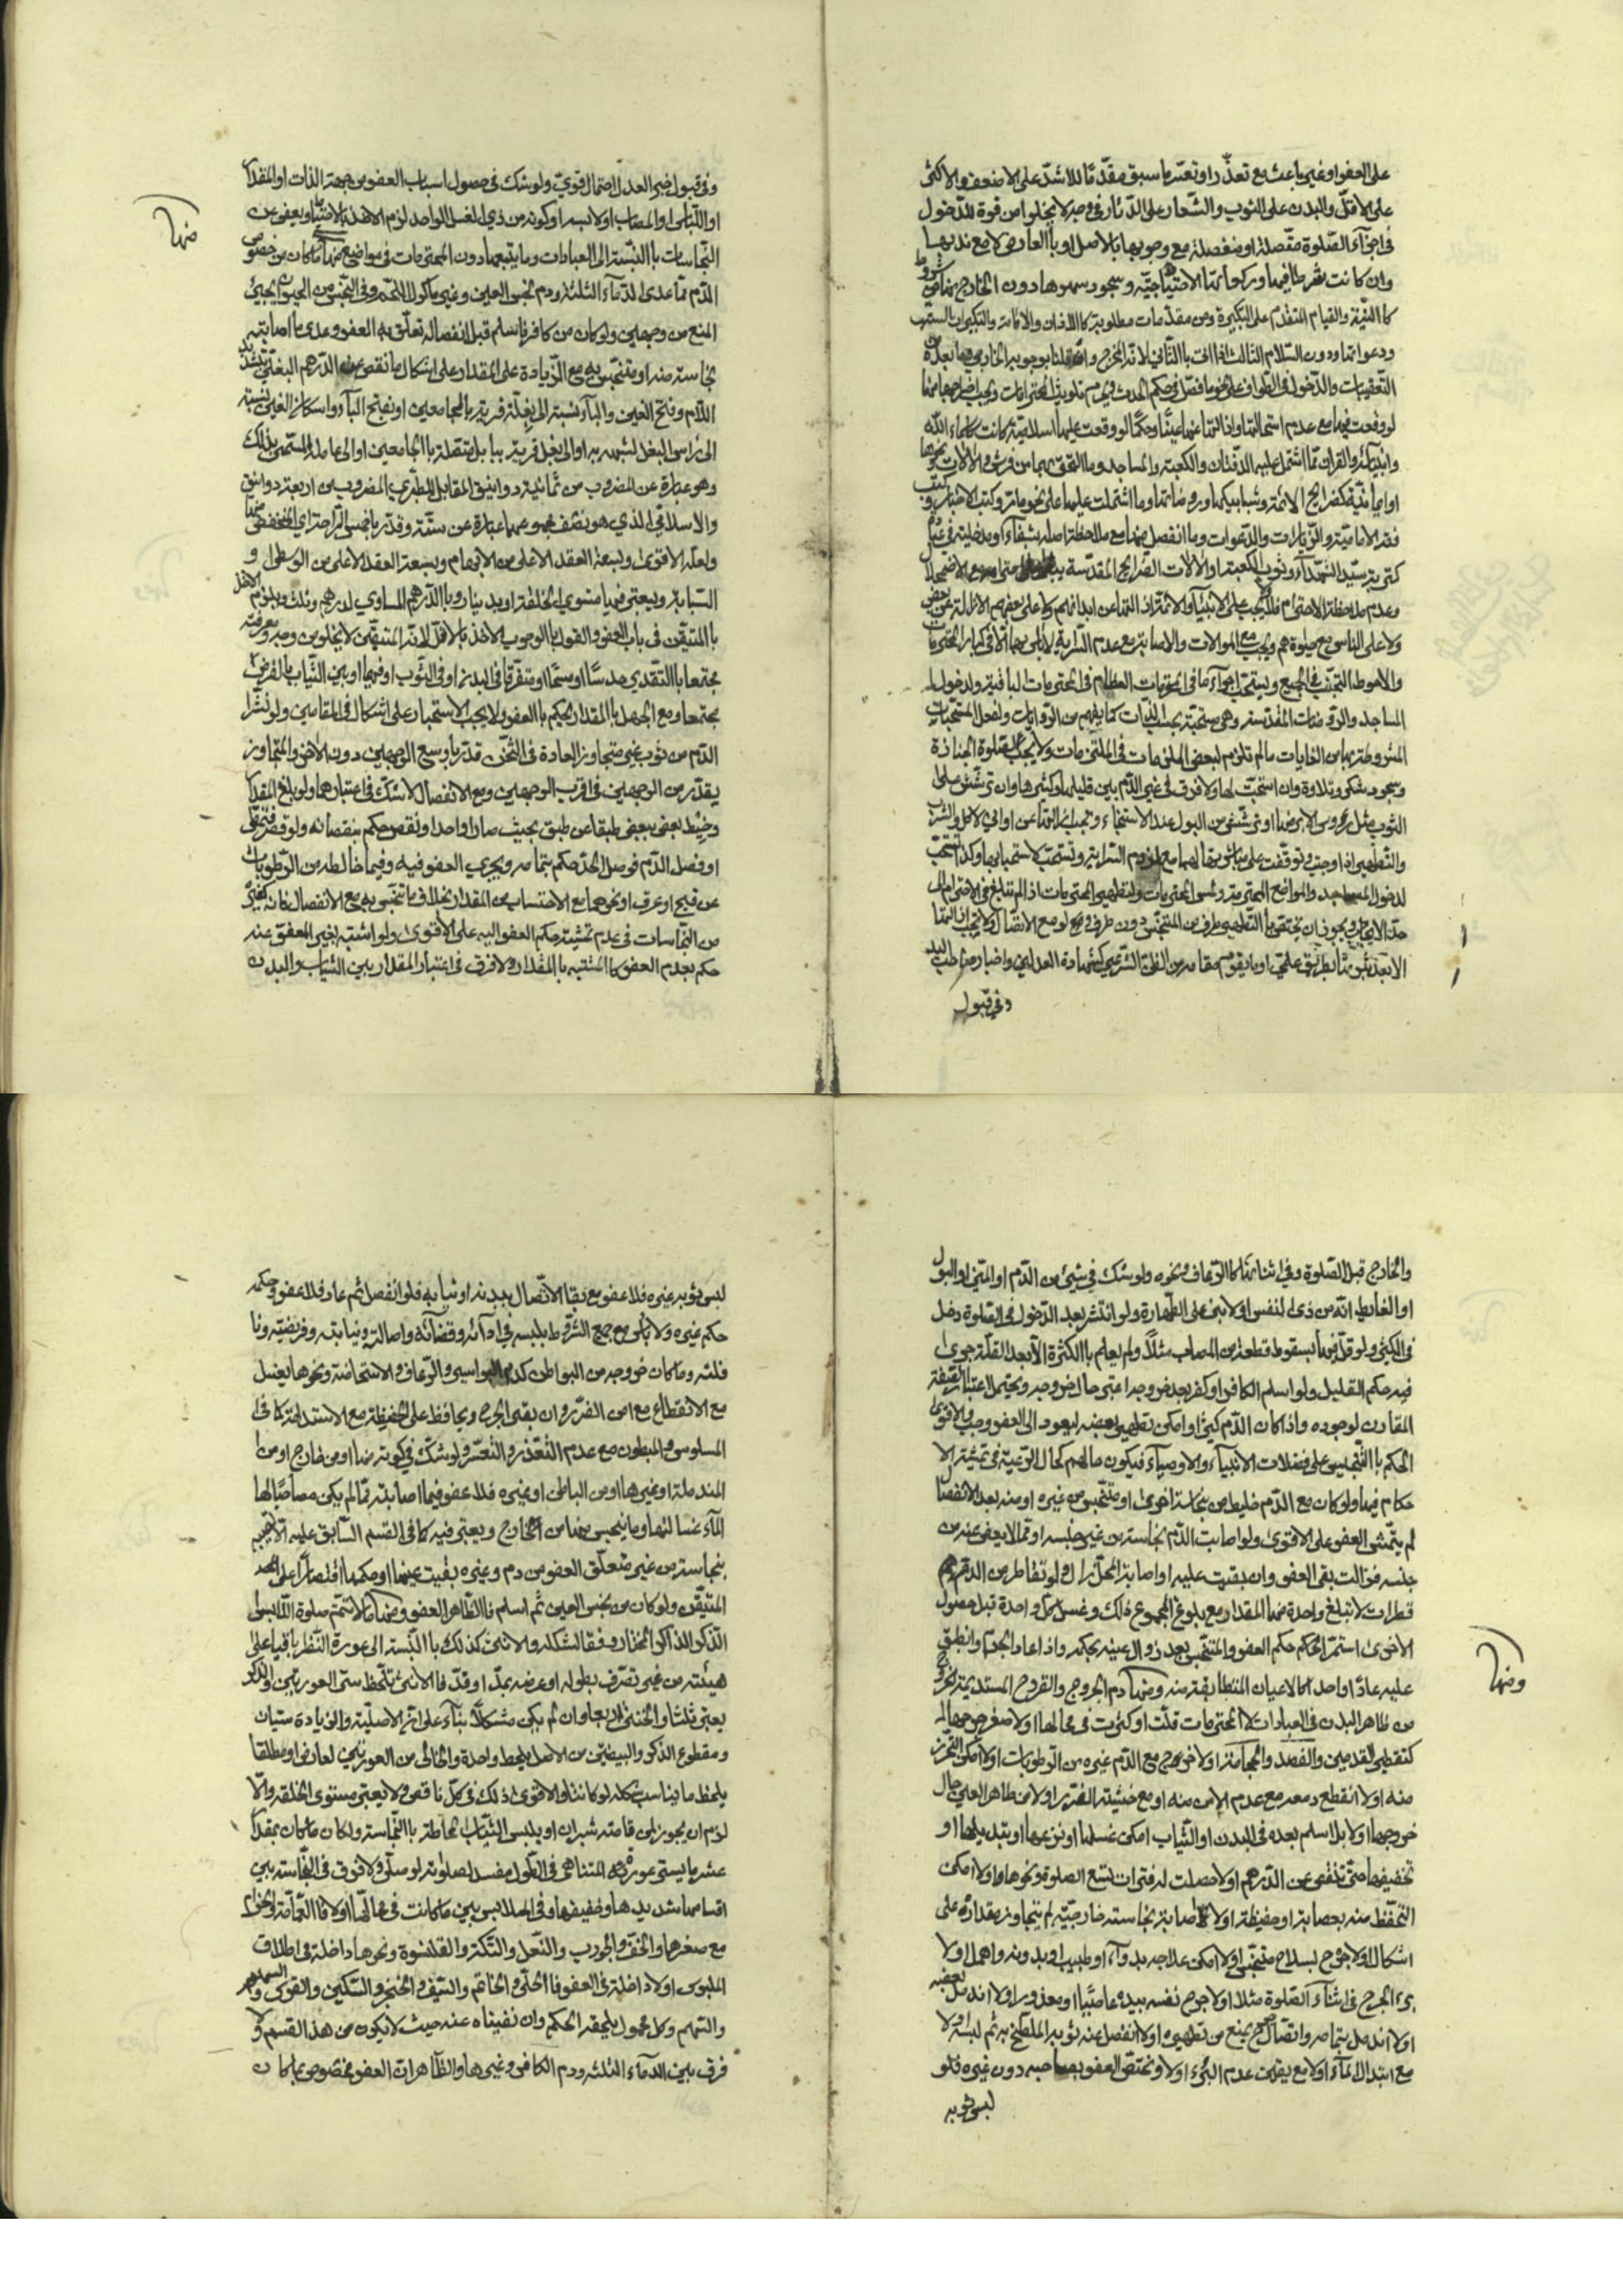 على العفو او غيره باعث مع تعذّر او تعسّر ما سبق مقدّما للاشدّ على الاضعف والاكثر
على الاقلّ والبدن على الثوب والشعار على الدّثار في وجه لا يخلو من قوة للدّخول
في اجزآء الصّلوة متّصلة او منفصلة مع وجوبها بالاصل او بالعارض لا مع ندبها
وان كانت شرطا فيها وركعاتها الاحتياجيّه وسجود سهوها دون الخارج عنها من شروط
كا النيّة والقيام المتقدم على التكبيرة ومن مقدّمات مطلوبة كا الاذان والاقامة والتكبيرات الست
ودعواتها ودون السّلام الثالث اذا اتى با الثّاني لانّه المخرج وان قلنا بوجوبه الخارجي وما بعده من
التعقيبات والدّخول في الطواف على نحو ما فصّل في حكم الحدث ويحرم تلويث المحترمات ويجب اخراجها منها
لو وقعت فيها مع عدم استحالتها وازالتها عنها عينا وحكما لو وقعت عليها اسلاميّة كانت كاسمآء الله
وانبيآئه والقران ممّا اشتمل عليه الدّفتان والكعبة والمساجد وما التحق بهما من فرش والالات ونحوها
او ايمانيّة كضرايح الائمّة وشبابيكها وروضاتها وما اشتملت عليها على نحو ما مر وكتب الاخبار وكتب
فقه الاماميّة والزّيارات والدّعوات وما انفصل عنها مع ملاحظة اصله شفآء او مدخليته في
كتربة سيّد الشّهدآء وثوب الكعبة او الالات الضّرايح المقدّسة حتى الاضمحلال
وعدم ملاحظة الاحترام فلا يجب على الانبيآء والائمّة ازالتها عن ابدانهم ولا على بعضهم الازالة عن بعض
ولا على الناس مع حيوتهم ويجب مع الموالات والاصابة مع عدم السّراية لا باس بها الّا في كبار المحترمات
والاحوط التجنّب في الجميع ويستحبّ اجرآء ما في المحترمات العظام في المحترمات الباقية ولدخول
المساجد والرّوضات المقدّسة وهي مستحبّة بحسب الذّات كما يفهم من الرّوايات ولفعل المستحبات
المشروطة بها من الغايات ما لم تلزم لبعض الملزمات في الملتزمات ولا يجب لصلوة الجنازة
وسجود شكر وتلاوة وان استحبّت لها ولا فرق في غير الدّم بين قليلها وكثيرها وان ترشّش على
الثوب مثل رؤس الابر ضا او ترشّش من البول عند الاستنجاء وتجب ازالتها عن اواني الاكل والشرب
والتّطهير اذا وجبت وتوقّفت على مباشرتها لهما مع لزوم السّراية وتستحب لاستحبابها وكذا تستحبّ
لدخول المساجد والمواضع المحترمة ولمس المحترمات ولتطهير المحترمات اذا لم تبلغ في الاحترام الى
حدّ الايجاب ويجوز ان يختصّ با التّطهير طرف من المتنجّس دون طرف ولو مع الاتّصال ولا تجب ازالتها
الا بعد ثبوتها بطريق علمي او ما يقوم مقامه من الظنّ الشّرعي كشهادة العدلين واخبار صاحب اليد
وفي قبول
وفي قبول خبر العدل احتمال قويّ ولو شك في حصول اسباب العفو من جهة الذات او المقدار
او اللّباس او المصاب او لابسه او كونه من ذي النفس او لا واحد لزم الاخذ بالاحتياط ويعفى عن
منها
النّجاسات با النّسبة الى العبادات وما يتبعها دون المحترمات في مواضع منها ما كان من خصوص
الدّم ممّا عدى الدّمآء الثلثة ودم نجس العين وغير ماكول اللّحم وفي النّجس من الحيوان يجيئ
المنع من وجهين ولو كان من كافر فاسلم قبل انفصاله تعلّق به العفو وعدى ما اصابته
نجاسة منه او متنجّس به مع الزّيادة على المقدار على اشكال ما نقص عن الدّرهم البغلّي بتشديد
اللّام وفتح الغين والبآء نسبة الى بغلّة قرية بالجامعين او بفتح البآء واسكان الغين نسبة
الى راس البغل لشهره به او الى بغل قرية ببابل متّصلة با الجامعين او الى عامله المسمّى بذلك
وهو عبارة عن المضروب من ثمانية دوانيق المقابل للطبري المضروب من اربعة دوانيق
والاسلامّي الذي هو نصف مجموعهما عبارة عن ستّة وقدّر باخمص الرّاحة اي المنخفض منها
ولعلّه الاقوى وبسعة العقد الاعلى من الابهام وبسعة العقد الاعلى من الوسطى و
السّبابة ويعتبر فيها مستوي الخلقة او بدينار وبا الدّرهم المساوي لدرهم وثلث ويلزم الاخذ
با المتيقّن في باب العفو والقول با الوجوب الاخذ بالاقل لانه المتيقّن لا يخلو من وجه ومعرفته
مجتمعا با التّقدير حدسّا او مسحّا او متفرّقا في البدن او في الثّوب او فيهما او بين الثّياب بالفرض
مجتمعا ومع الجهل با المقدار يحكم با العفو ولا يجب الاستخبار على اشكال في المقامين ولو نشر
الدّم من ثوب غير متجاوز العادة في الثّخن قدّر باوسع الوجهين دون الاخر والمتجاوز
يقدّر من الوجهين في اقرب الوجهين ومع الانفصال لا شكّ في اعتبارهما ولو بلغ المقدار
وخيط بعض ببعض طبقا عن طبق بحيث صارا واحدا ونقص حكم بنقصانه ولو قصّر فبقي
او فصل الدّم فوصل الحدّ حكم بتمامه ويجري العفو فيه وفيما خالطه من الرّطوبات
عن قيح او عرق او نحوهما مع الاحتساب من المقدار بخلاف ما تنجّس به مع الانفصال فانه كغيره
من النّجاسات في عدم تمشية حكم العفو اليه على الاقوى ولو اشتبه بغير المعفوّ عنه
حكم بعدم العفو كا المشتبه با المقدار ولا فرق في اعتبار المقدار بين الثياب والبدن
والخارج قبل الصّلوة وفي اثنائها كا الرّعاف ونحوه ولو شك في شئ من الدّم او المني او البول
او الغايط انّه من ذي النفس او لا بنى على الطّهارة ولو انتشر بعد الدّخول في الصّلوة دخل
في الكثير ولو قلّ فيها بسقوط قطعة من المصاب مثلّا ولم يعلم با الكثرة الّا بعد القلّة جرى
فيه حكم القليل ولو اسلم الكافر او كفر بعد خروجه اعتبر حال خروجه ويحتمل اعتبار الصّفة
المقارن لوجوده واذا كان الدّم كثيرا وامكن تطهير بعضه ليعود الى العفو وجب والاقوى
الحكم با التّنجيس على فضلات الانبيآء والاوصيآء فيكون مالهم كحال الرّعيّة في تمشية الا
حكام فيها ولو كان مع الدّم خليط من نجاسة اخرى او متنجّس من غيره او منه بعد الانفصال
لم يتمّش العفو على الاقوى ولو اصابت الدّم نجاسة من غير جنسه او ممّا لا يعفى عنه من
جنسه فزالت بقي العفو وان بقيت عليه او اصابة المحلّ زال ولو تقاطر من الدّم
قطرات لا تبلغ واحدة منها المقدار مع بلوغ المجموع ذلك وغسل كلّ واحدة قبل حصول
الاخرى استمرّ الحكم حكم العفو والمتنجّس بعد زوال عينه بحكمه واذا عاد الجدّ وانطبق
عليه عادّا واحدا كا الاعيان المتطابقة منه ومنها دم الجروح والقروح المستديمة الخروج
ومنها
من ظاهر البدن في العبادات لا المحترمات قلّت او كثرت في محالها او لا صغر جرمها له
كتفطير القدمين والفصد والحجآمة او لا خروج مع الدّم غيره من الرّطوبات او لا امكن التحرز
منه او لا انقطع دمعه مع عدم الامن منه او مع خشية الضّرر او لا من ظاهر العين حال
خروجها او لا بل اسلم بعده في البدن او الثّياب امكن غسلها او نزعها او تبديلها او
تخفيفها حتى تنقص عن الدّرهم او لا حصلت له فترات تسع الصلوة ونحوها او لا امكن
التحفّظ منه بعصابة او حفيظة او لا اصابته نجاسته خارجيّه لم يتجاوز مقداره على
اشكال او لا جرح بسلاح متنجّس او لا امكن علاجه بدوآء او طبيب او بدونه واهمل او لا
برء الجرح في اثنآء الصّلوة مثلا او لا جرح نفسه بيده عاصيا او معذورا او لا اندمل بعضه
او لا اندمل بتمامه واتّصال يمنع من تطهيره او لا انفصل عنه ثوبه الملطّخ به ثم لبسه او لا
مع ابتدال المآء او لا مع يقين عدم البرء او لا ويختصّ العفو بصاحبه دون غيره فلو
لبس ثوبه
لبس ثوبه غيره فلا عفو مع بقا الاتّصال ببدنه او ثيابه فلو انفصل ثم عاد فلا عفو وحكمه
حكم غيره ولا باس مع جمع الشّروط بلبسه في ادآئه وقضآئه واصالة ونيابته وفريضته ونا
فلته وما كان خروجه من البواطن كدم البواسير والرّعاف والاستحاضة ونحوها يغسل
مع الانقطاع مع امن الضّرر وان بقي الجرح ويحافظ على الحفيظة مع الاستدامة كا في
المسلوس والمبطون مع عدم التّعذر والتّعسّر ولو شكّ في كونه منها او من خارج او من
المندملة او غيرها او من الباطن او غيره فلا عفو فيما اصابته ممّا لم يكن مصاحبّا لها
المآء غسالتها وما يتنجس بها من الخارج ويعتبر فيه كا في القسم السّابق عليه الّا يتنجس
بنجاسة من غير متعلّق العفو من دم وغيره بقيت عينها او حكمها اقتصارّا على
المتيقّن ولو كان من نجس العين ثم اسلم فا الظّاهر العفو ومنها ما لا تتم صلوة اللّابس
الذّكر الذاكر المختار وفقا لشكله والانثى كذلك با النّسبة الى عورة النّظر باقيا على
هيئته من غير تصّرف بطوله او عرضه بمدّ او قدّ فا الانثى تلّحظ ستر العورتين والذّكر
يعتبر ثلثا والخنثى اربعا وان لم يكن مشكلّا بنآء على انّ الاصليّة والزيادة ستيان
ومقطوع الذّكر والبيضتين من الاصل يلحظ واحدة والخالى من العورتين لعارض او مطلقا
يلحظ ما يناسب شكله لو كانتا والاقوى ذلك في كلّ ناقص ولا يعتبر مستوى الخلقة والّا
لزم ان يجوز لمن قامته شبران او يلبس الثّياب المحاطة با النّجاسة ولكان ما كان بمقدار
عشر ما يستر عورة المتناهي في الطّول مفسد لصلوته لو صلّى ولا فرق في النّجاسته بين
اقسامها شديدها وخفيفها وفي الملابس بين ما كانت في محالّها او لا فا العمّامة والحزام
مع صغرهما والخف والجورب والنّعل والتّكّة والقلنسوة ونحوها داخلة في اطلاق
الملبوس او لا داخلة في العفو فا الحلّي والخاتم والسّيف والخنجر والسّكين والقوس والدرهم
والسّهم وكل محمول يلحقه الحكم وان نفيناه عنه حيث لا يكون من هذا القسم ولا
فرق بين الدمآء الثلثه ودم الكافر وغيرها والظّاهر ان العفو مخصوص بما كان